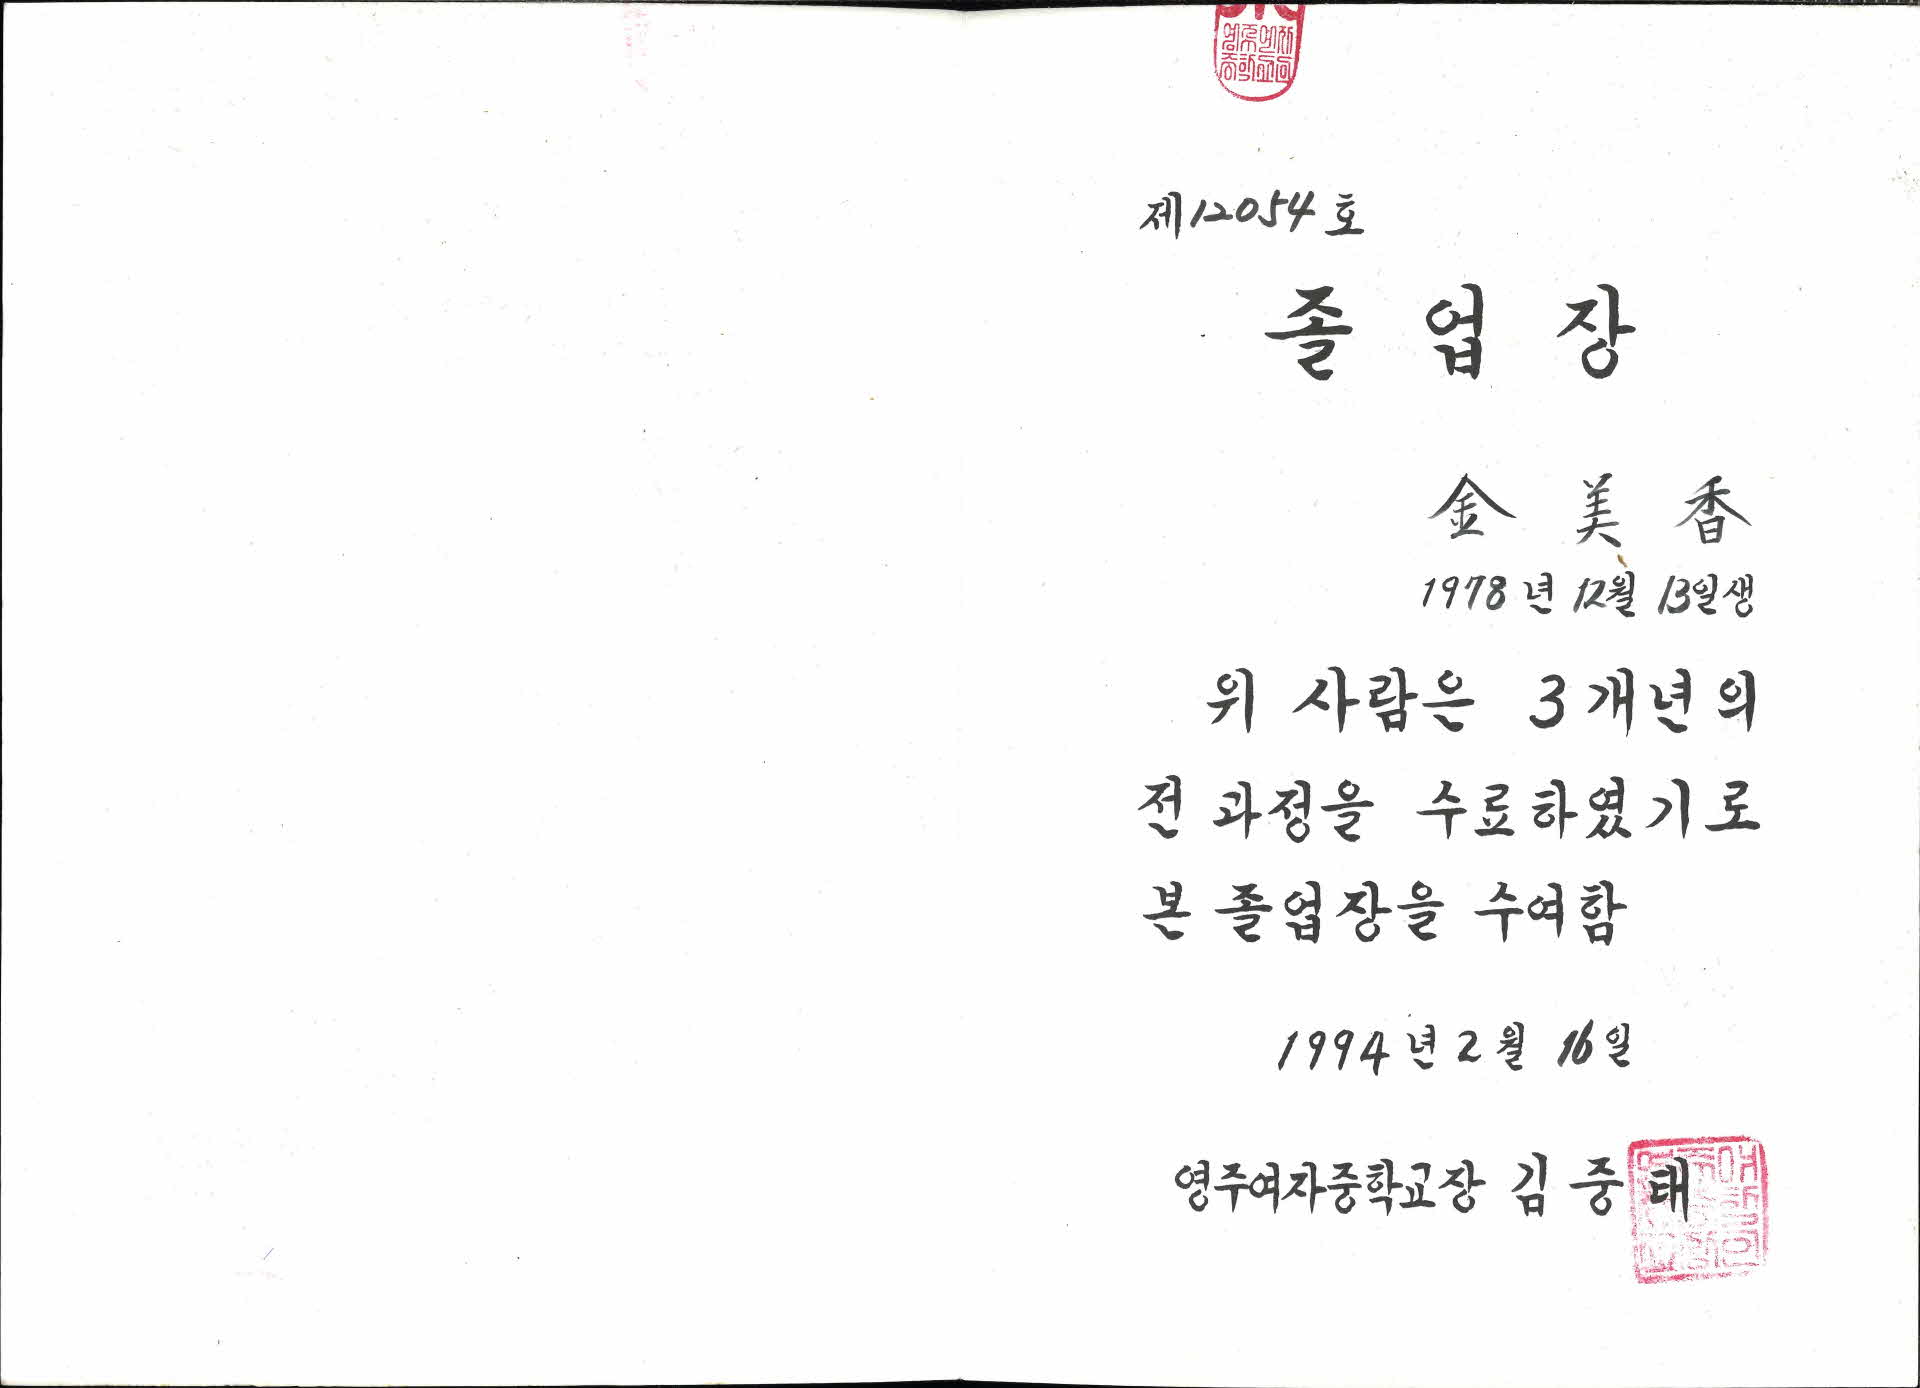 영주여자
중학교인
제12054호
졸업장
金美香
1978년 12월 13일생
위 사람은 3개년의
전 과정을 수료하였기로
본 졸업장을 수여함
1994년 2월 16일
영주여자중학교장 김중태